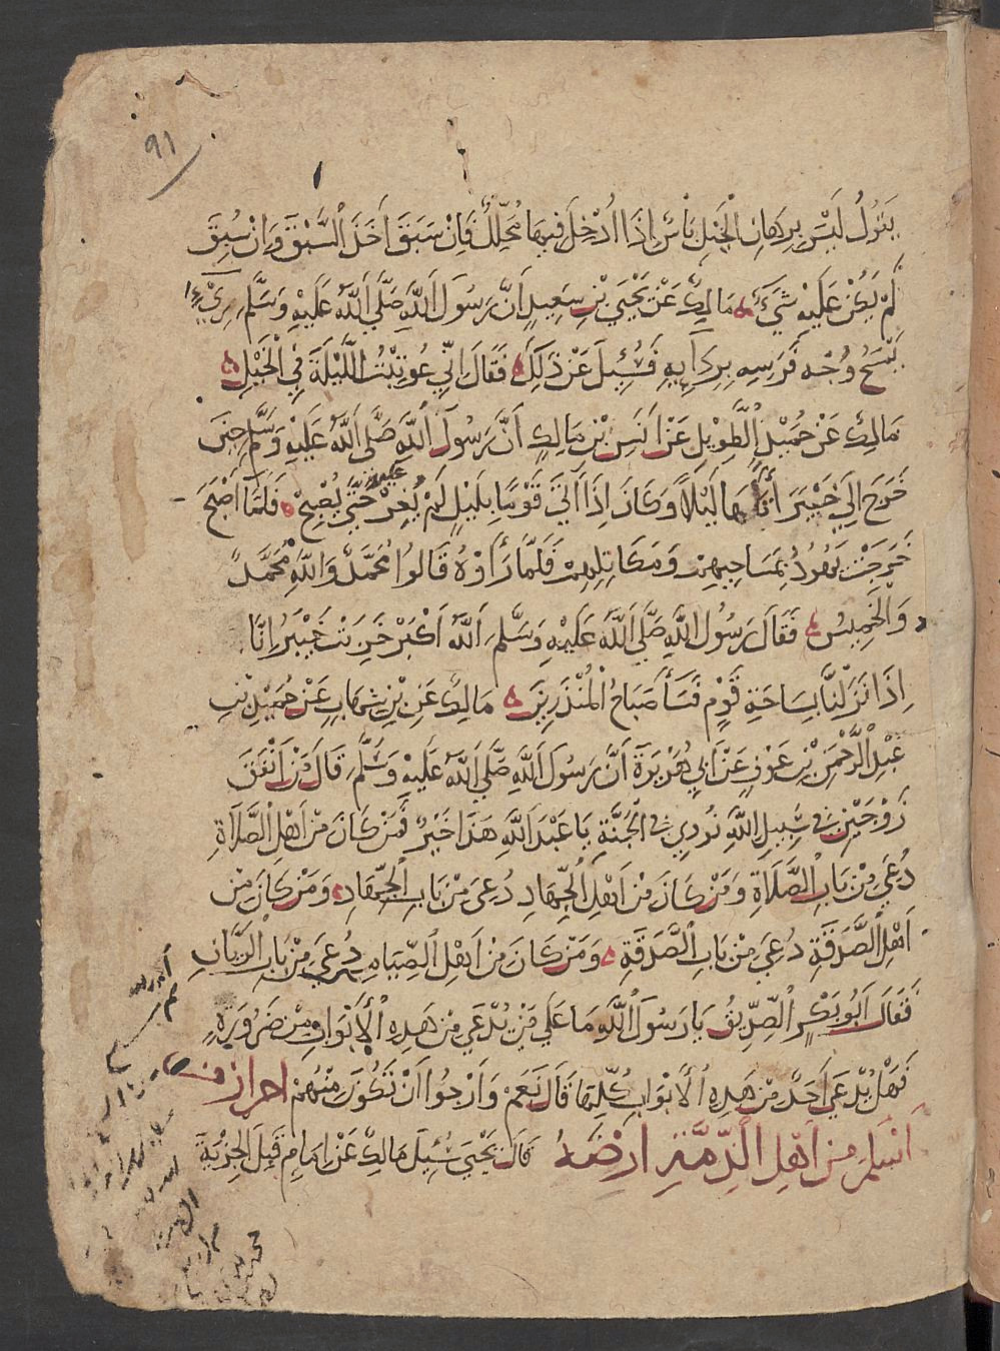 ٩١
يَقُولُ لَيْسَ بِرِهَانِ الْخَيْلِ بَأْسٌ إِذَا أُدْخِلَ فِيهَا مُحَلِّلٌ فَإِنْ سَبَقَ أَخَذَ السَّبْقَ وَإِنْ سُبِقَ
لَمْ يَكُنْ عَلَيْهِ شَيْءٌ مَالِكٌ عَنْ يَحْيَى بْنِ سَعِيدٍ أَنَّ رَسُولَ اللَّهِ صَلَّى اللَّهُ عَلَيْهِ وَسَلَّمَ رِيءَ
يَمْسَحُ وُجْهَ فَرَسِهِ بِرِدَايِهِ فَسُئِلَ عَنْ ذَلِكَ فَقَالَ إِنِّي عُوتِبْتُ اللَّيْلَةَ فِي الْخَيْلِ
مَالِكٌ عَنْ حُمَيْدٍ الطَّوِيلِ عَنْ أَنَسِ بْنِ مَالِكٍ أَنَّ رَسُولَ اللَّهِ صَلَّى اللَّهُ عَلَيْهِ وَسَلَّمَ حِينَ
خَرَجَ إِلَى خَيْبَرَ أَتَاهَا لَيْلًا وَكَانَ إِذَا أَتَى قَوْمًا بِلَيْلٍ لَمْ يُغِرْ حَتَّى يُصْبِحَ فَلَمَّا أَصْبَحَ
خَرَجَتْ يَهُودُ بِمَسَاحِيهِمْ وَمَكَاتِلِهِمْ فَلَمَّا رَأَوْهُ قَالُوا مُحَمَّدٌ وَاللَّهِ مُحَمَّدٌ
وَالْخَمِيسُ فَقَالَ رَسُولُ اللَّهِ صَلَّى اللَّهُ عَلَيْهِ وَسَلَّمَ اللَّهُ أَكْبَرُ خَرِبَتْ خَيْبَرُ إِنَّا
إِذَا نَزَلْنَا بِسَاحَةِ قَوْمٍ فَسَاءَ صَبَاحُ الْمُنْذَرِينَ مَالِكٌ عَنِ بْنِ شِهَابٍ عَنْ حُمَيْدِ بْنِ
عَبْدِ الرَّحْمَنِ بْنِ عَوْفٍ عَنْ أَبِي هُرَيْرَةَ أَنَّ رَسُولَ اللَّهِ صَلَّى اللَّهُ عَلَيْهِ وَسَلَّمَ قَالَ مَنْ أَنْفَقَ
زَوْجَيْنِ فِي سَبِيلِ اللَّهِ نُودِيَ فِي الْجَنَّةِ يَا عَبْدَ اللَّهِ هَذَا خَيْرٌ فَمَنْ كَانَ مِنْ أَهْلِ الصَّلَاةِ
دُعِيَ مِنْ بَابِ الصَّلَاةِ وَمَنْ كَانَ مِنْ أَهْلِ الْجِهَادِ دُعِيَ مِنْ بَابِ الْجِهَادِ وَمَنْ كَانَ مِنْ
أَهْلِ الصَّدَقَةِ دُعِيَ مِنْ بَابِ الصَّدَقَةِ وَمَنْ كَانَ مِنْ أَهْلِ الصِّيَامِ دُعِيَ مِنْ بَابِ الرَّيَّانِ
فَقَالَ أَبُو بَكْرٍ الصِّدِّيقُ يَا رَسُولَ اللَّهِ مَا عَلَى مَنْ يُدْعَى مِنْ هَذِهِ الْأَبْوَابِ مِنْ ضَرُورَةٍ
فَهَلْ يُدْعَى أَحَدٌ مِنْ هَذِهِ الْأَبْوَابِ كُلِّهَا قَالَ نَعَمْ وَأَرْجُوا أَنْ تَكُونَ مِنْهُمْ احراز من
أَسْلَمَ مِنْ أَهْلِ الذِّمَّةِ أَرْضَهُ قَالَ يَحْيَى سُئِلَ مَالِكٌ عَنْ إِمَامٍ قَبِلَ الْجِزْيَةَ